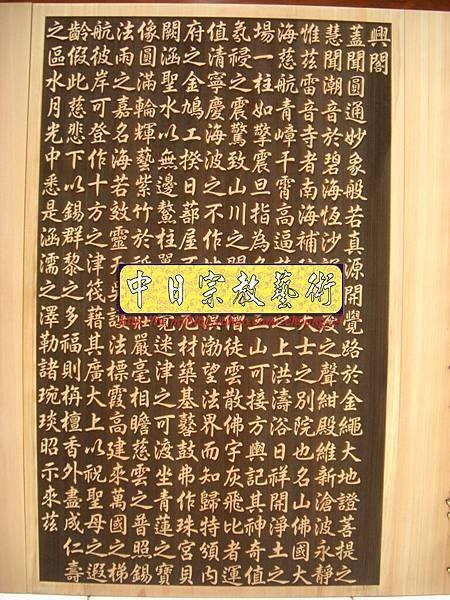 興閣
蓋聞圓通妙象般若真源開覺路於金繩大地證菩提之
慧聞潮音於碧海恆沙之聲紺殿維新滄波永靜
惟茲雷音寺者南海補士之別院也名山佛國大
海慈航青嶂千霄高逼之上洪濤浴日祥開淨土之
場一柱如擎震旦指為山可接方輿記其神奇值
氛祲之震驚致山川之徒雲散佛宇灰飛比者運
值清寧慶海波之不作渤望法界而知歸特頒內
府之金鳩工揆日蔀屋材築基鼛鼓弗作珠宮貝
闕涵聖水以無邊鰲柱迷津之可渡坐青蓮之寶
像圓滿輪輝藝紫竹於嚴毫相瞻慈雲之普照錫
法雨之嘉名海若效靈法標霞高建來萬國之梯
航彼岸可登作十方之津筏藉其廣大上以祝聖母之遐
齡假此慈悲下以錫群黎之多福則栴檀香外盡成仁壽
之區水月光中悉是涵濡之澤勒諸琬琰昭示來茲
中日宗教藝術